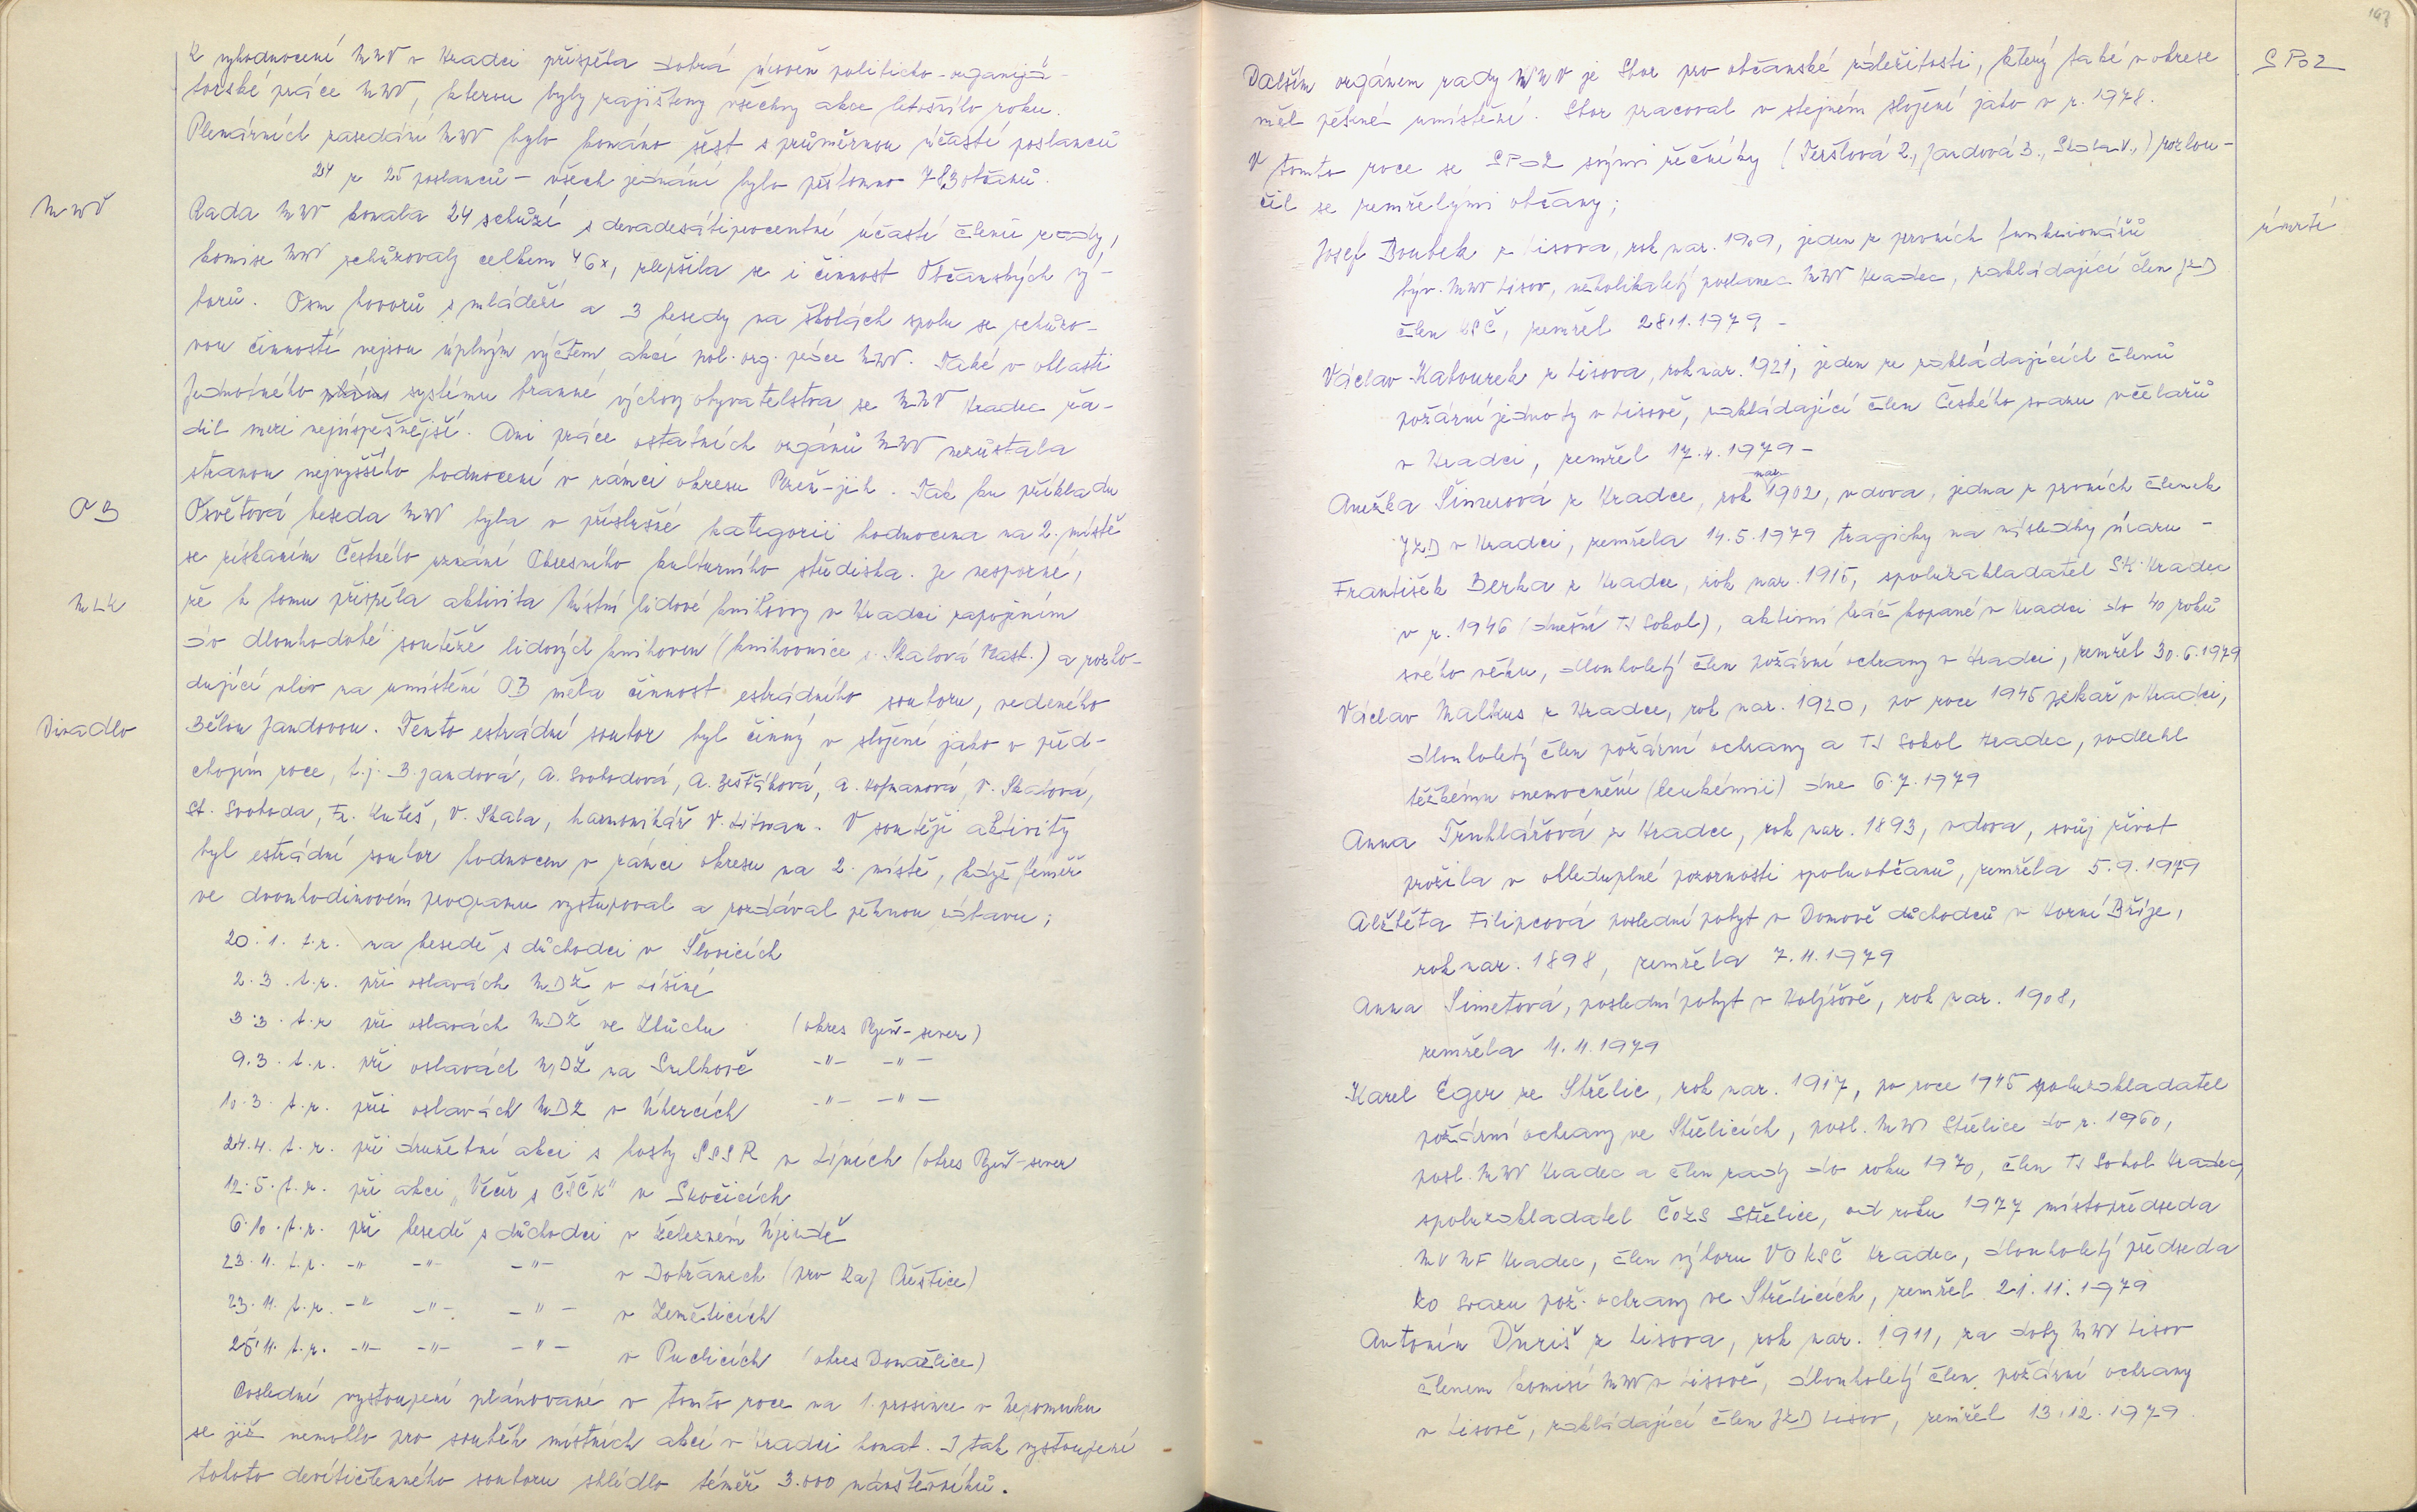 K vyhodnocení MNV v Hradci přispěla dobrá úroveň politicko-organizá-
torské práce MNV, kterou byly zajištěny všechny akce letošního roku.
Plenárních zasedání MNV bylo konáno šest s průměrnou účastí poslanců
24 z 25 poslanců - všech jednání bylo přítomno 783 občanů.
MNV
Rada MNV konala 24 schůzí s devadesátiprocentní účastí členů rady,
komise MNV schůzovaly celkem 46x, zlepšila se i činnost Občanských vý-
borů. Osm hovorů s mládeží a 3 besedy na školách spolu se schůzo-
vou činností nejsou úplným výčtem akcí pol. org. práce MNV. Také v oblasti
Jednotného systému branné výchovy obyvatelstva se MNV Hradec řa-
dil mezi nejúspěšnější. Ani práce ostatních orgánů MNV nezůstala
stranou nejvyššího hodnocení v rámci okresu Plzeň-jih. Tak ku příkladu
OB
Osvětová beseda MNV byla v příslušné kategorii hodnocena na 2. místě
se získaním Čestného uznání Okresního kulturního střediska. Je nesporné,
MLK
že k tomu přispěla aktivita Místní lidové knihovny v Hradci zapojením
do dlouhodobé soutěže lidových knihoven (knihovnice s. Skalová Nast.) a rozho-
dující vliv na umístění OB měla činnost estrádního souboru, vedeného
Divadlo
Bělou Jandovou. Tento estrádní soubor byl činný v složení jako v před-
chozím roce, t.j. B. Jandová, A. Svobodová, A. Šesťáková, A. Hofmanová, V. Skalová,
St. Svoboda, Fr. Kuteš, V. Skala, harmonikář V. Litvan. V soutěži aktivity
byl estrádní soubor hodnocen v rámci okresu na 2. místě, když téměř
ve dvouhodinovém programu vystupoval a rozdával pěknou zábavu;
20. 1. t.r. na besedě s důchodci v Šlovicích
2. 3. t.r. při oslavách MDŽ v Líšiné
3. 3. t.r. při oslavách MDŽ ve Kbůchu (okres Plzeň-sever)
9. 3. t.r. při oslavách MDŽ na Sulkově -"- -"-
10. 3. t.r. při oslavách MDŽ v Úhercích -"- -"-
24. 4. t.r. při družební akci s hosty SSSR v Líních (okres Plzeň-sever
12. 5. t.r. při akci "Večer s ČSČK" v Skočicích
6. 10. t.r. při besedě s důchodci v Železném Újezdě
23. 11. t.r. -"- -"- -"- v Dobřanech (pro Raj Přeštice)
23. 11. t.r. -"- -"- -"- v Zeměticích
25. 11. t.r. -"- -"- -"- v Puclicích (okres Domažlice)
Poslední vystoupení plánované v tomto roce na 1. prosince v Nepomuku
se již nemohlo pro souběh místních akcí v Hradci konat. I tak vystoupení
tohoto devítičlenného souboru shlédlo téměř 3.000 návštěvníků.
SPOZ
Dalším orgánem rady MNV je Sbor pro občanské záležitosti, který také v okrese
měl pěkné umístění. Sbor pracoval v stejném složení jako v r. 1978.
V tomto roce se SPOZ svými řečníky (Teršlová Z., Jandová B., Skala V.,) rozlou-
čil se zemřelými občany;
úmrtí
Josef Boubek z Lisova, rok nar. 1909, jeden z prvních funkcionářů
býv. MNV Lisov, několikaletý poslanec MNV Hradec, zakládající člen JZD
člen KSČ, zemřel 28.1.1979 -
Václav Kabourek z Lisova, rok nar. 1921, jeden ze zakládajících členů
požární jednoty v Lisově, zakládající člen Českého svazu včelařů
v Hradci, zemřel 17.4.1979 -
Anežka Šimerová z Hradce, rok nar. 1902, vdova, jedna z prvních členek
JZD v Hradci, zemřela 14.5.1979 tragicky na následky úrazu -
František Berka z Hradce, rok nar. 1915, spoluzakladatel SK Hradec
v r. 1946 (dnešní TJ Sokol), aktivní hráč kopané v Hradci do 40 roků
svého věku, dlouholetý člen požární ochrany v Hradci, zemřel 30.6.1979
Václav Malkus z Hradce, rok nar. 1920, po roce 1945 pekař v Hradci,
dlouholetý člen požární ochrany a TJ Sokol Hradec, podlehl
těžkému onemocnění (leukémii) dne 6.7.1979
Anna Truhlářová z Hradce, rok nar. 1893, vdova, svůj život
prožila v ohleduplné pozornosti spoluobčanů, zemřela 5.9.1979
Alžběta Filipcová poslední pobyt v Domově důchodců v Horní Bříze,
rok nar. 1898, zemřela 7.11.1979
Anna Šimetová, poslední pobyt v Holýšově, rok nar. 1908,
zemřela 11.11.1979
Karel Eger ze Střelic, rok nar. 1917, po roce 1945 spoluzakladatel
požární ochrany ve Střelicích, posl. MNV Střelice do r. 1960,
posl. MNV Hradec a člen rady do roku 1970, člen TJ Sokol Hradec,
spoluzakladatel ČOZS Střelice, od roku 1977 místopředseda
MV NF Hradec, člen výboru VO KSČ Hradec, dlouholetý předseda
ZO Svazu pož. ochrany ve Střelicích, zemřel 21.11.1979
Antonín Ďuriš z Lisova, rok nar. 1911, za doby MNV Lisov
členem komisí MNV v Lisově, dlouholetý člen požární ochrany
v Lisově, zakládající člen JZD Lisov, zemřel 13.12.1979